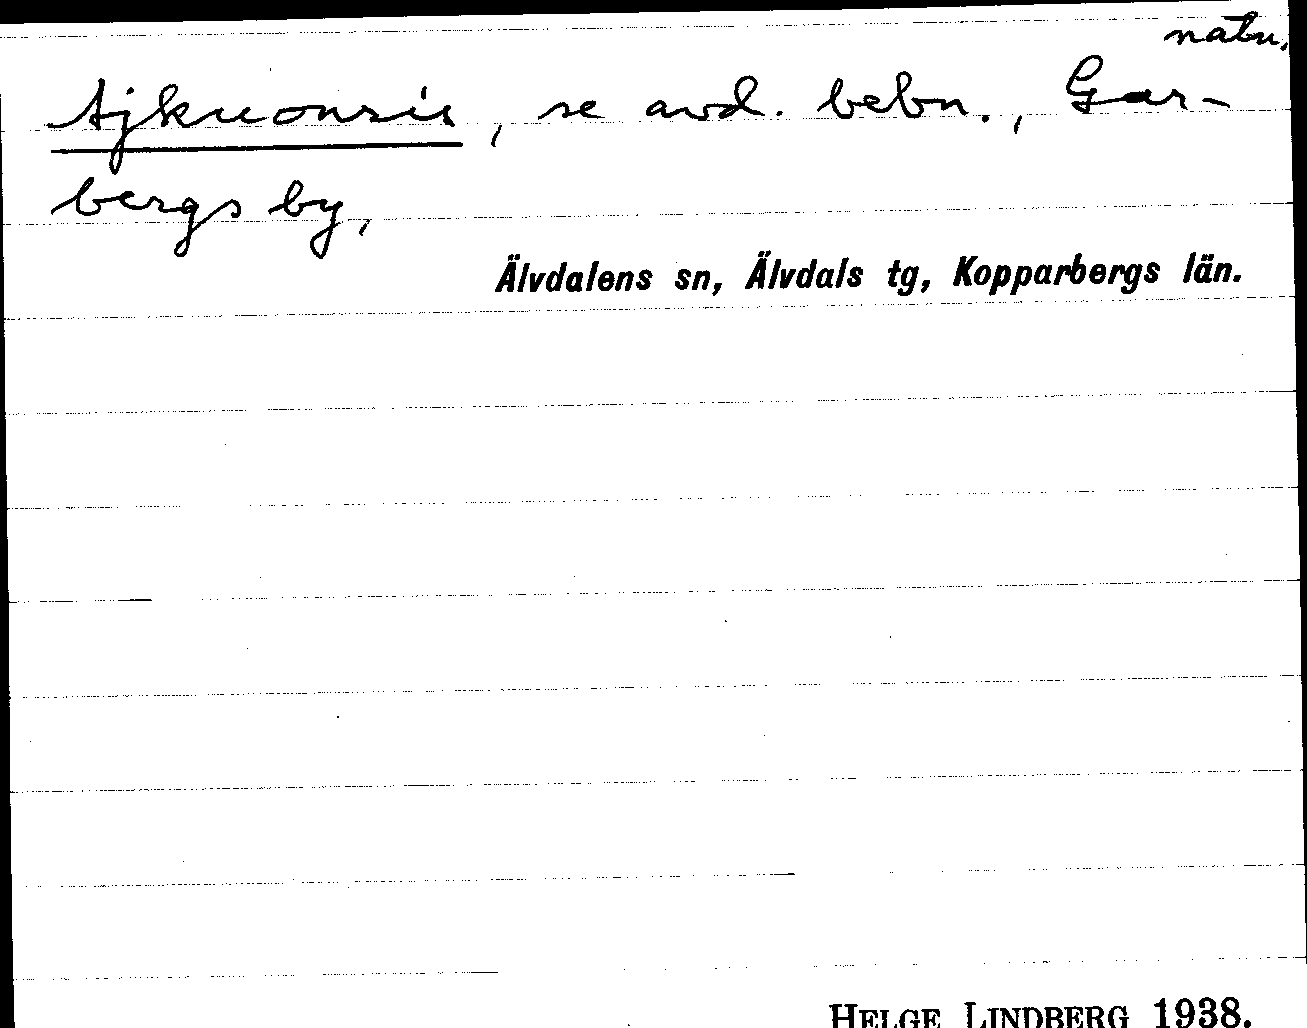 natn.
Ajkuonsis, se avd. bebn., Gar-
bergs by,
Älvdalens sn, Älvdals tg, Kopparbergs län.
HELGE LINDBERG 1938.